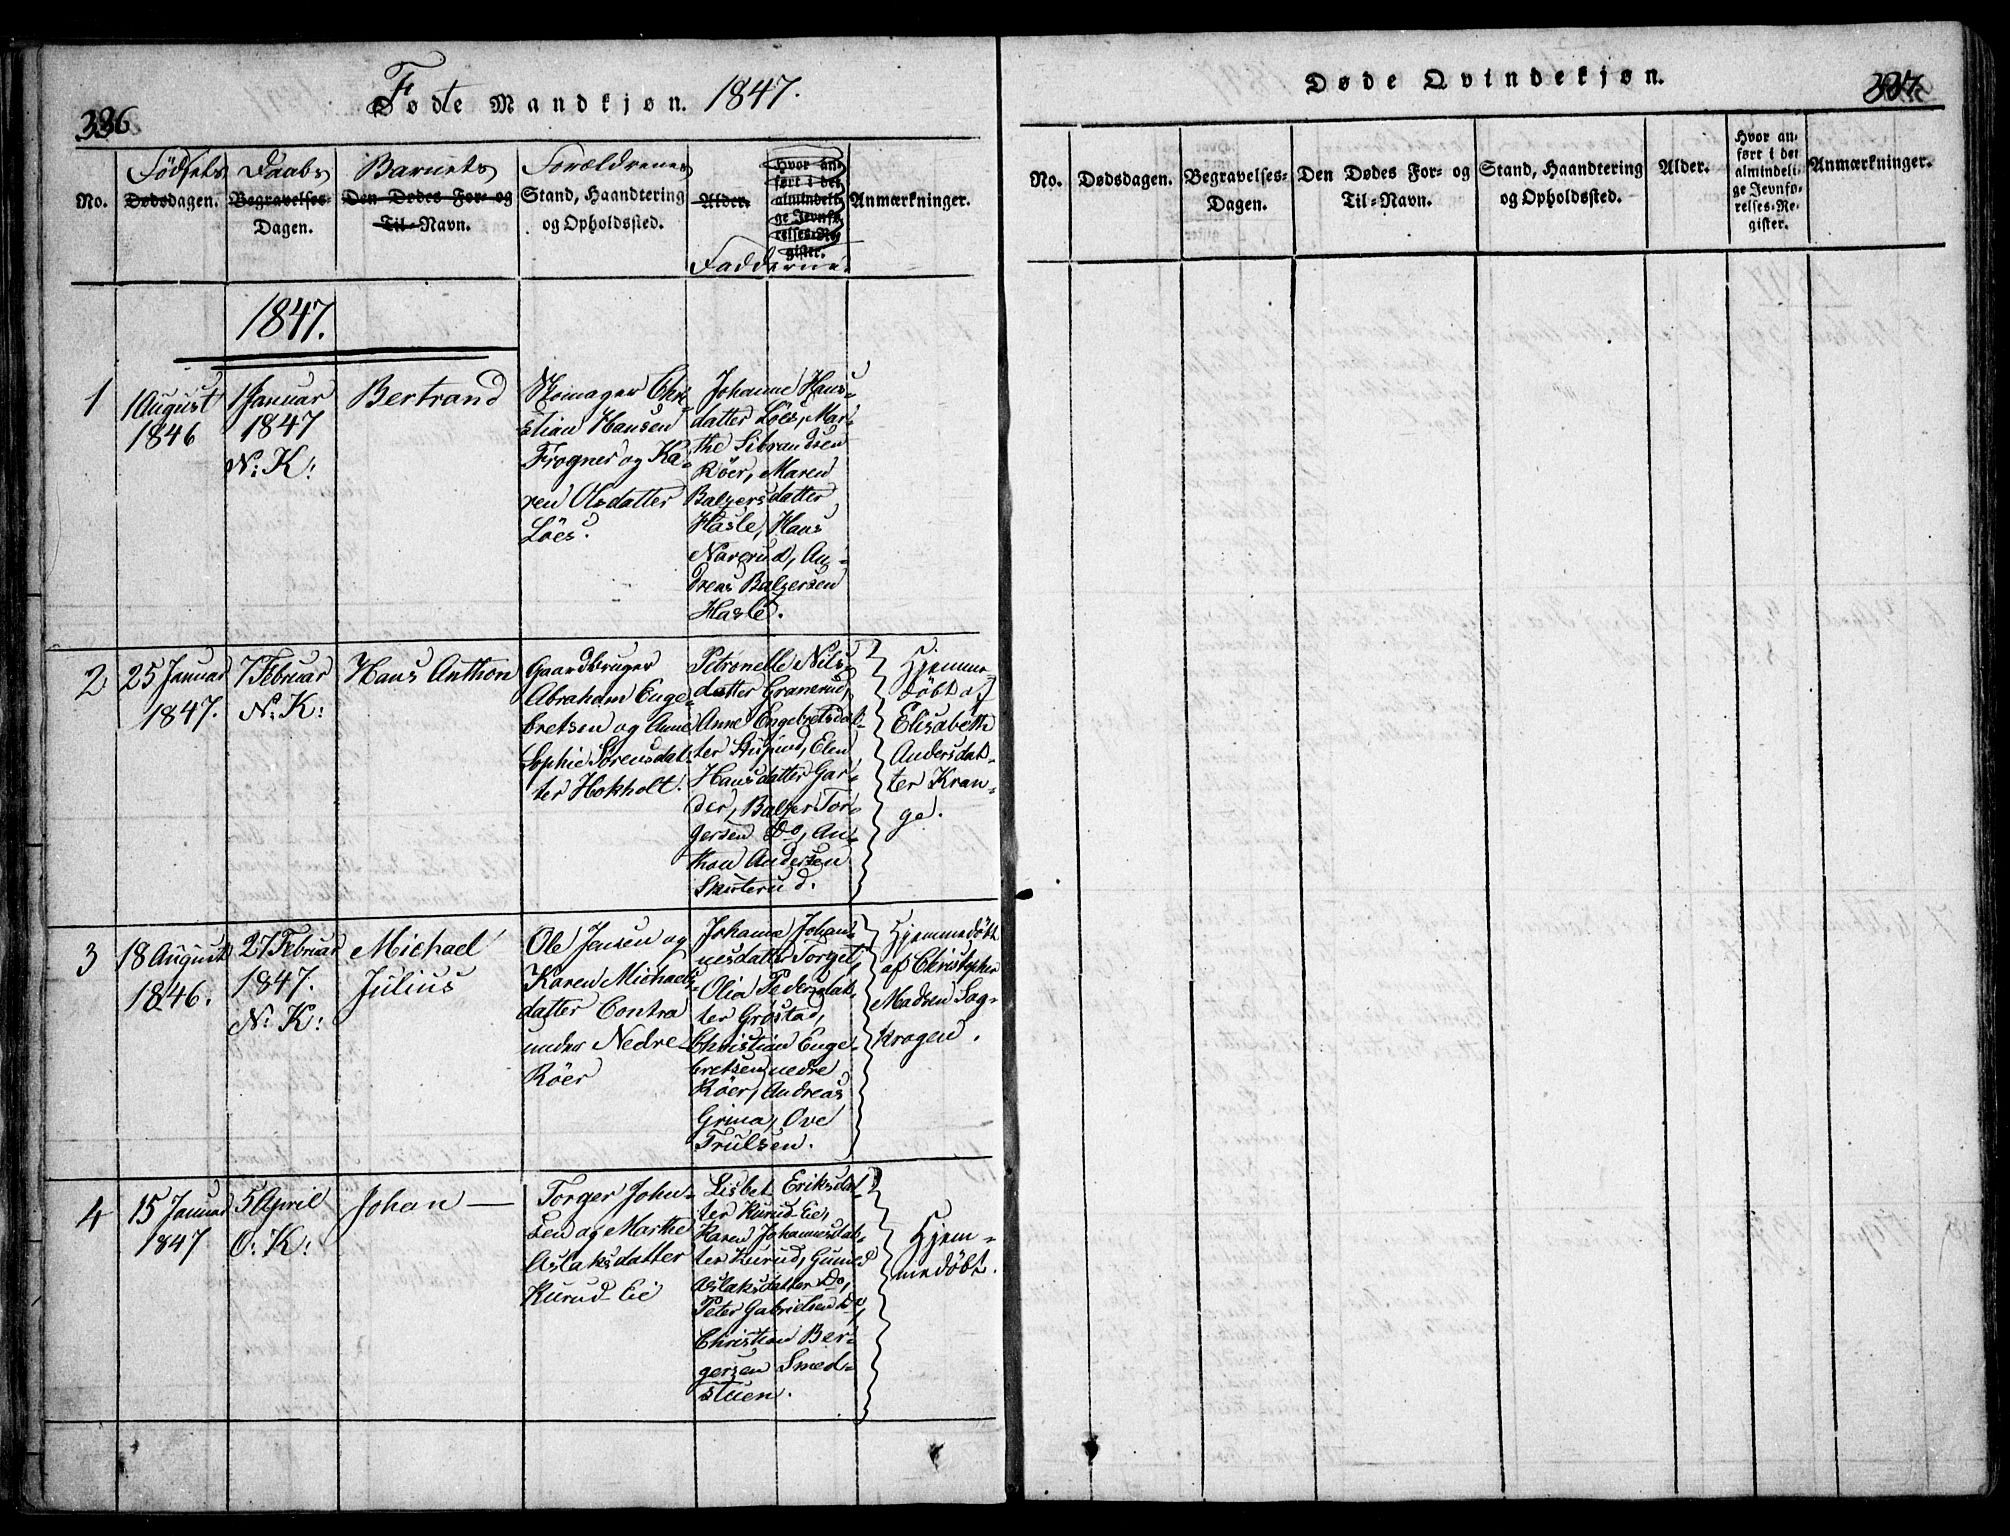 336
Fødte Mandkjøn. 1847.
No.
Fødsels
Dødsdagen.
Daabs
Begravelses-
Dagen.
Barnets
Den Dødes For- og
Til-Navn.
Forældrenes
Stand, Haandtering
og Opholdssted.
Alder.
Hvor an-
ført i det
almindeli-
ge Jevnfø-
relses-Re-
gister.
Fadderne.
Anmærkninger.
1847.
1
1 August
1846
1 Januar
1847
N: K:
Bertrand
Skomager Chri-
stian Hansen
Frogner og Ka-
ren Olsdatter
Löes.
Johanne Hans-
datter Löes, Mar-
the Sibrandsen
Röer, Maren
Balzersdatter
Hasle, Hans
Narerud, An-
dreas Balzersen
Hasle.
2
25 Januar
1847.
7 Februar
N: K:
Hans Anthon
Gaardbruger
Abraham Enge-
bretsen og Anne
Sophie Sørensdat-
ter Hokholt.
Petronelle Nils-
datter Granerud,
Anne Engebretsdat-
ter Elen
Hansdatter Gar-
der, Balzer Tor-
gersen Do, An-
thon Andersen
Skuterud.
Hjemme-
døbt af
Elisabeth
Andersdat-
ter Kran-
ge.
3
18 August
1846.
27 Februar
1847.
N: K:
Michael
Julius
Ole Jensen og
Karen Michaels-
datter Contra
under Nedre
Röer
Johanne Johan-
nesdatter Torget,
Olia Pedersdat-
ter Gröstad,
Christian Enge-
bretsen nedre
Röer, Andreas
Grina, Ove
Trulsen.
Hjemmedöbt
af Christopher
Madsen Sag-
krogen.
4
15 Januar
1847
5 April
O: K:
Johan —
Torger John-
sen og Marthe
Aslaksdatter
Kurud Eie
Lisbet Eriksdat-
ter Kurud-Eie,
Karen Johannesdat-
ter Kurud, Guned
Aslaksdatter Do,
Peter Gabrielsen Do,
Christian Ber-
gersen Smed-
stuen.
Hjem-
medöbt.
Døde Qvindekjøn.
337
No.
Dødsdagen.
Begravelses-
Dagen.
Den Dødes For- og
Til-Navn.
Stand, Haandtering
og Opholdssted.
Alder.
Hvor an-
ført i det
almindeli-
ge Jevnfø-
relses-Re-
gister.
Anmærkninger.